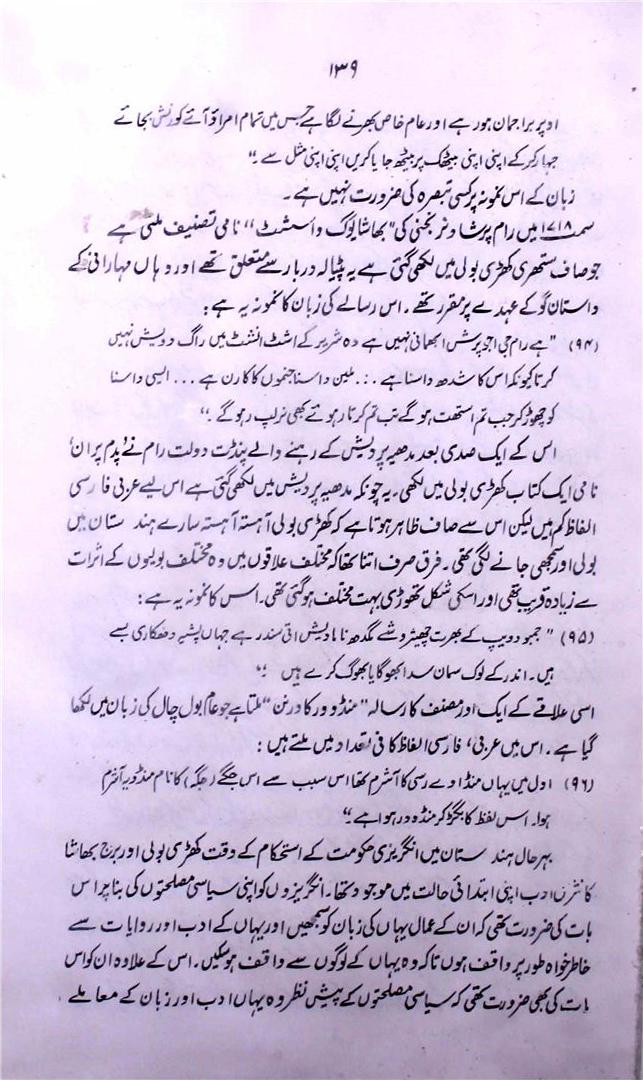 ۱۳۹
اوپر براجمان ہور ہے اور عام خاص بھرنے لگا ہے جس میں تمام امراؤ آتے کورنش بجائے
جہار کر کے اپنی اپنی بیٹھک پر بیٹھ جایا کریں اپنی اپنی مثل سے۔"
زبان کے اس نمونہ پر کسی تبصرہ کی ضرورت نہیں ہے۔
سمت ۱۷۱۸ میں رام پرشاد نرنجنی کی "بھاشا یوگ واسشٹ" نامی تصنیف ملتی ہے
جو صاف ستھری کھڑی بولی میں لکھی گئی ہے یہ پٹیالہ دربار سے متعلق تھے اور وہاں مہارانی کے
داستان گو کے عہدے پر مقرر تھے۔ اس رسالے کی زبان کا نمونہ یہ ہے:
(۹۴) "ہے رام جی! جو پرش ابھمانی نہیں ہے وہ شریر کے اشٹ انشٹ میں راگ دویش نہیں
کرتا کیونکہ اس کا شدھ واسنا ہے ... ملین واسنا جنموں کا کارن ہے ... ایسی واسنا
کو چھوڑ کر جب تم استھت ہو گے تب تم کرتا ر ہوتے بھی نرلیپ رہو گے۔"
اس کے ایک صدی بعد مدھیہ پردیش کے رہنے والے پنڈت دولت رام نے 'پدم پران'
نامی ایک کتاب کھڑی بولی میں لکھی۔ یہ چونکہ مدھیہ پردیش میں لکھی گئی ہے اس لیے عربی فارسی
الفاظ کم ہیں لیکن اس سے صاف ظاہر ہوتا ہے کہ کھڑی بولی آہستہ آہستہ سارے ہندستان میں
بولی اور سمجھی جانے لگی تھی۔ فرق صرف اتنا تھا کہ مختلف علاقوں میں وہ مختلف بولیوں کے اثرات
سے زیادہ قریب تھی اور اسکی شکل تھوڑی بہت مختلف ہو گئی تھی۔ اس کا نمونہ یہ ہے:
(۹۵) "جمبو دویپ کے بھرت چھیتر وشے مگدھ نامادیش اتی سندر ہے جہاں پنیہ دھکاری بسے
ہیں۔ اندر کے لوک سمان سدا بھوگا یا بھوگ کرے ہیں۔"
اسی علاقے کے ایک اور مصنف کا رسالہ "منڈوور کا درنن" ملتا ہے جو عام بول چال کی زبان میں لکھا
گیا ہے۔ اس میں عربی، فارسی الفاظ کافی تعداد میں ملتے ہیں:
(۹۶) اول میں یہاں منڈا دے رسی کا آشرم تھا اس سبب سے اس جگے (جگہ) کا نام منڈویہ آشرم
ہوا۔ اس لفظ کا بگڑ کر منڈہ ور ہوا ہے۔"
بہرحال ہندستان میں انگریزی حکومت کے استحکام کے وقت کھڑی بولی اور برج بھاشا
کا نثری ادب اپنی ابتدائی حالت میں موجود تھا۔ انگریزوں کو اپنی سیاسی مصلحتوں کی بنا پر اس
بات کی ضرورت تھی کہ ان کے عمال یہاں کی زبان کو سمجھیں اور یہاں کے ادب اور روایات سے
خاطر خواہ طور پر واقف ہوں تاکہ وہ یہاں کے لوگوں سے واقف ہو سکیں۔ اس کے علاوہ ان کو اس
بات کی بھی ضرورت تھی کہ سیاسی مصلحتوں کے پیش نظر وہ یہاں ادب اور زبان کے معاملے